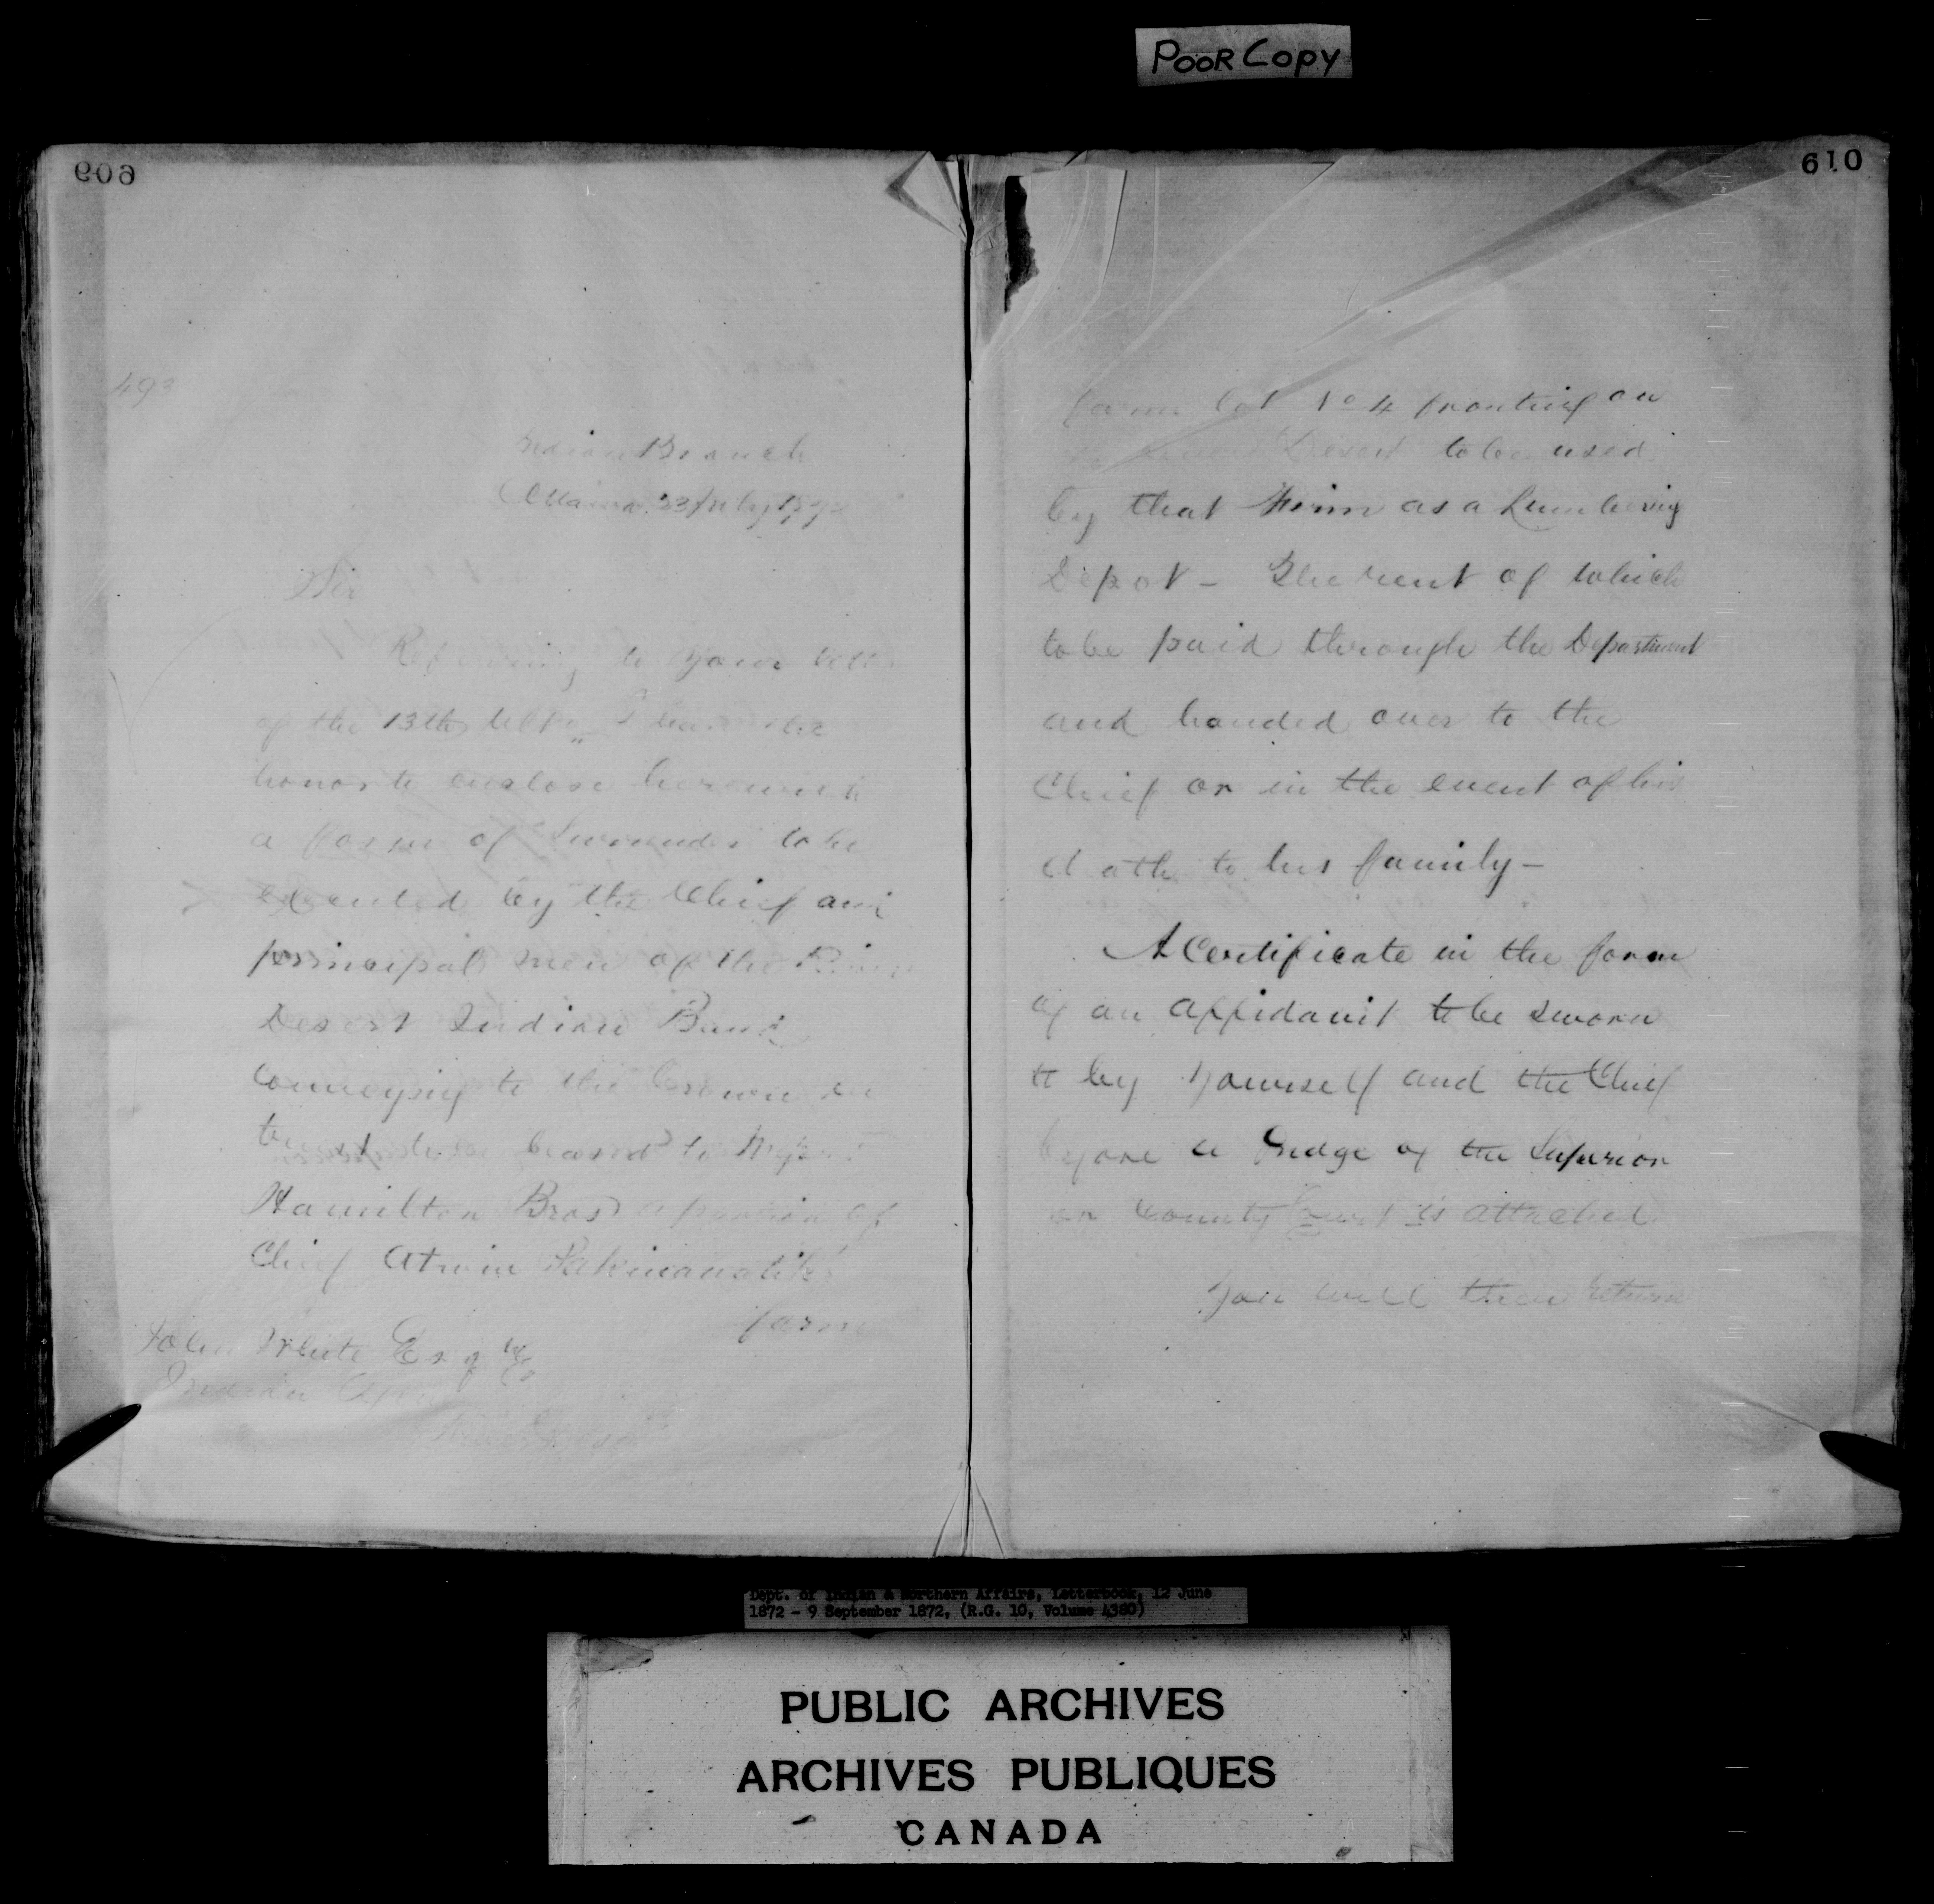 POOR Copy
609
493
Indian Branch
Ottawa 23 July 1872
Sir
Referring to your letter
of the 13th Ulto I have the
honor to enclose herewith
a form of Surrender to be
executed by the Chief and
principal men of the River
Desert Indian Band
conveying to the Crown in
trust to be leased to
Hamilton Bros a portion of
Chief
farm
John White Esqre
Indian Agent
River Desert
610
farm lot No 4 fronting on
River Desert to be used
by that Firm as a Lumbering
Depot - The rent of which
to be paid through the Department
and handed over to the
Chief or in the event of his
death to his family -
A Certificate in the form
of an affidavit to be sworn
to by yourself and the Chief
before a Judge of the Superior
or County Court is attached
You will then return
Dept. of Indian & Northern Affairs, Letterbook, 12 June
1872 - 9 September 1872, (R.G. 10, Volume 4380)
PUBLIC ARCHIVES
ARCHIVES PUBLIQUES
CANADA